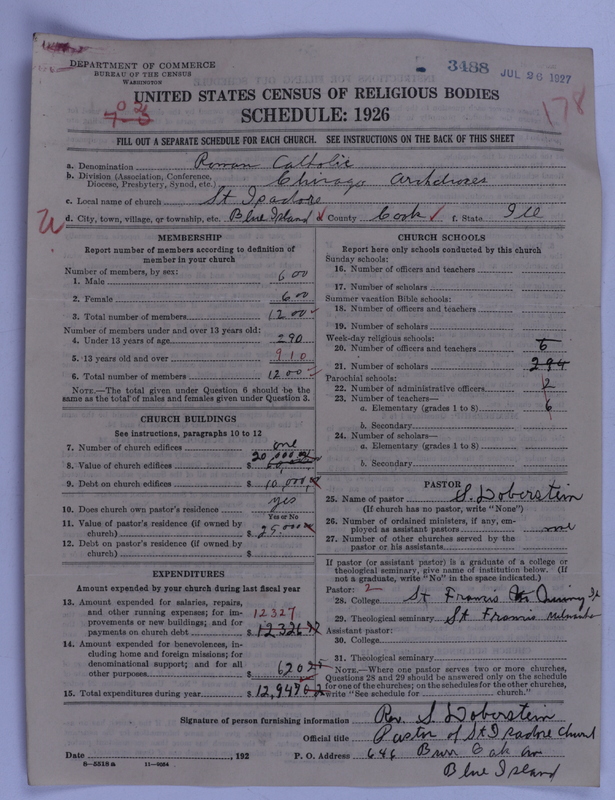 DEPARTMENT OF COMMERCE
BUREAU OF THE CENSUS
WASHINGTON
3488 JUL 26 1927
178
UNITED STATES CENSUS OF RELIGIOUS BODIES
SCHEDULE: 1926
FILL OUT A SEPARATE SCHEDULE FOR EACH CHURCH. SEE INSTRUCTIONS ON THE BACK OF THIS SHEET
a. Denomination Roman Catholic
b. Division (Association, Conference, Diocese, Presbytery, Synod, etc.) Chicago Archdioces
c. Local name of church St Isadore
d. City, town, village, or township, etc. Blue Island County Cook f. State Ill
MEMBERSHIP
Report number of members according to definition of
member in your church
Number of members, by sex:
1. Male 600
2. Female 600
3. Total number of members 1200
Number of members under and over 13 years old:
4. Under 13 years of age 290
5. 13 years old and over 910
6. Total number of members 1200
NOTE.—The total given under Question 6 should be the
same as the total of males and females given under Question 3.
CHURCH BUILDINGS
See instructions, paragraphs 10 to 12
7. Number of church edifices one
8. Value of church edifices $ 20,000
9. Debt on church edifices $ 10,000
10. Does church own pastor's residence yes
Yes or No
11. Value of pastor's residence (if owned by
church) $ 25000
12. Debt on pastor's residence (if owned by
church) $
EXPENDITURES
Amount expended by your church during last fiscal year
13. Amount expended for salaries, repairs,
and other running expenses; for im-
provements or new buildings; and for
payments on church debt $ 12327
14. Amount expended for benevolences, in-
cluding home and foreign missions; for
denominational support; and for all
other purposes $ 620
15. Total expenditures during year $
CHURCH SCHOOLS
Report here only schools conducted by this church
Sunday schools:
16. Number of officers and teachers
17. Number of scholars
Summer vacation Bible schools:
18. Number of officers and teachers
19. Number of scholars
Week-day religious schools:
20. Number of officers and teachers
21. Number of scholars 294
Parochial schools:
22. Number of administrative officers 2
23. Number of teachers—
a. Elementary (grades 1 to 8) 6
b. Secondary
24. Number of scholars—
a. Elementary (grades 1 to 8)
b. Secondary
PASTOR
25. Name of pastor S. Doberstein
(If church has no pastor, write "None")
26. Number of ordained ministers, if any, em-
ployed as assistant pastors none
27. Number of other churches served by the
pastor or his assistants
If pastor (or assistant pastor) is a graduate of a college or
theological seminary, give name of institution below. (If
not a graduate, write "No" in the space indicated.)
Pastor: 2
28. College St Francis Quincy Ill
29. Theological seminary St Francis
Assistant pastor:
30. College
31. Theological seminary
NOTE.—Where one pastor serves two or more churches,
Questions 28 and 29 should be answered only on the schedule
for one of the churches; on the schedules for the other churches,
write "See schedule for church."
Signature of person furnishing information Rev. S. Doberstein
Official title Pastor of St Isadore Church
Date 192 P. O. Address 646 Burr Oak av
Blue Island
8-5518a 11-9054